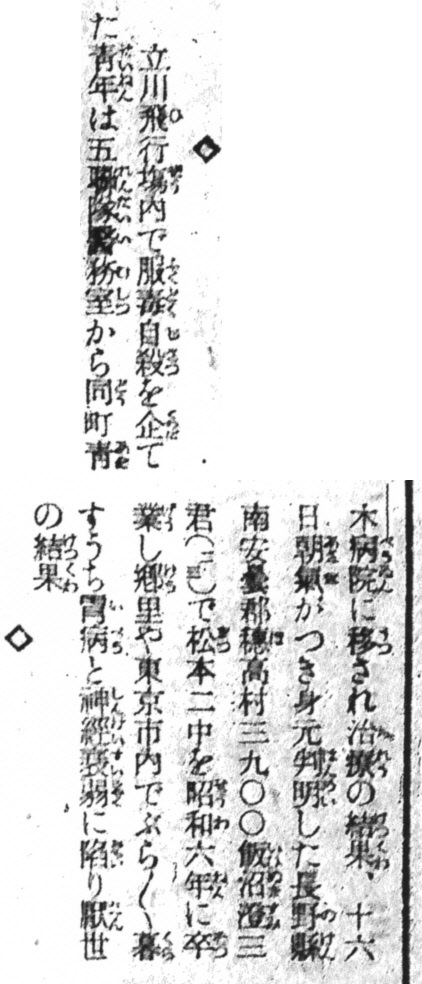 ◇
立川飛行場内で服毒自殺を企て
た青年は五聯隊醫務室から同町青
木病院に移され治療の結果、十六
日朝氣がつき身元判明した長野縣
南安曇郡穗高村三九〇〇飯沼澄三
君()で松本二中を昭和六年に卒
業し鄕里や東京市內でぶら〱暮
すうち胃病と神經衰弱に陷り厭世
の結果
◇